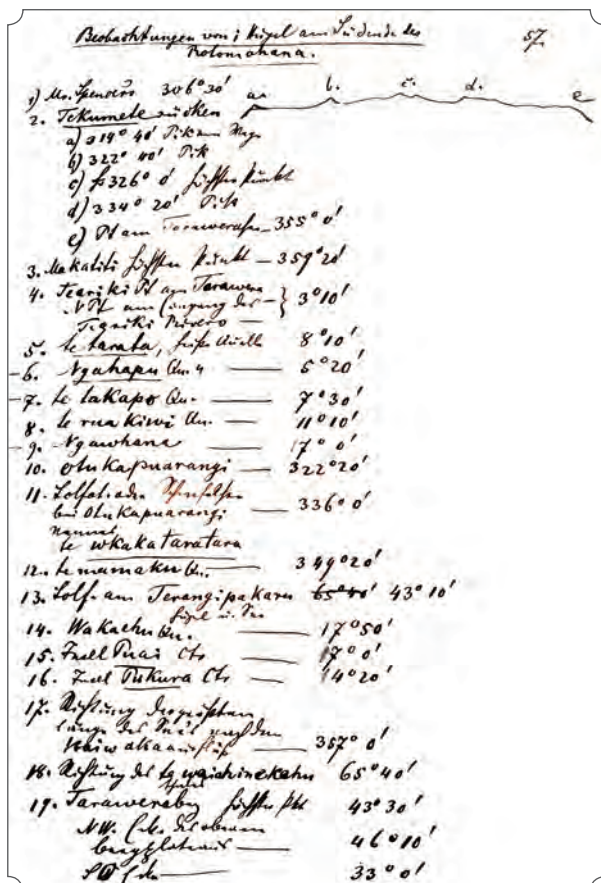 Beobachtungen von i Hügel am Südende des
Rotomahana.
57.
1) Mr. Spencers 306° 30'
a. b. c. d. e
2. Tekumete rücken
a) 319° 40' Pik am Weg
b) 322° 40' Pik
c) 326° 0' höchster Punkt
d) 334° 20' Pik
e) Pt am Tarawerasee 355° 0'
3. Makatiti höchster Punkt — 359° 20'
4. Teariki Pt am Tarawera
N Pt am Eingang des — } 3° 10'
Teariki Rivers —
5. te tarata, heiße Quelle 8° 10'
6. Ngahapu Qu. " — 5° 20'
7. te takapo Qu. — 7° 30'
8. te rua kiwi Qu. — 11° 10'
9. Ngawhana — 17° 0'
10. Otukapuarangi — 322° 20'
11. Solfatare
bei Otukapuarangi — 336° 0'
Namens
te whakataratara
12. te mamaku Qu. — 349° 20'
13. Solf. am Terangipakaru 65° 40' 43° 10'
Hügel u. See
14. Wakaehu Qu. — 17° 50'
15. Insel Puai Ctr — 17° 0'
16. Insel Pukura Ctr — 14° 20'
17. Richtung der größten
Länge des Sees nach dem
Kaiwakaausfluß — 357° 0'
18. Richtung des 65° 40'
19. Taraweraberg höchster Pkt 43° 30'
NW. Ecke des oberen
Bergplateaus — 46° 10'
SO Ecke — 33° 0'